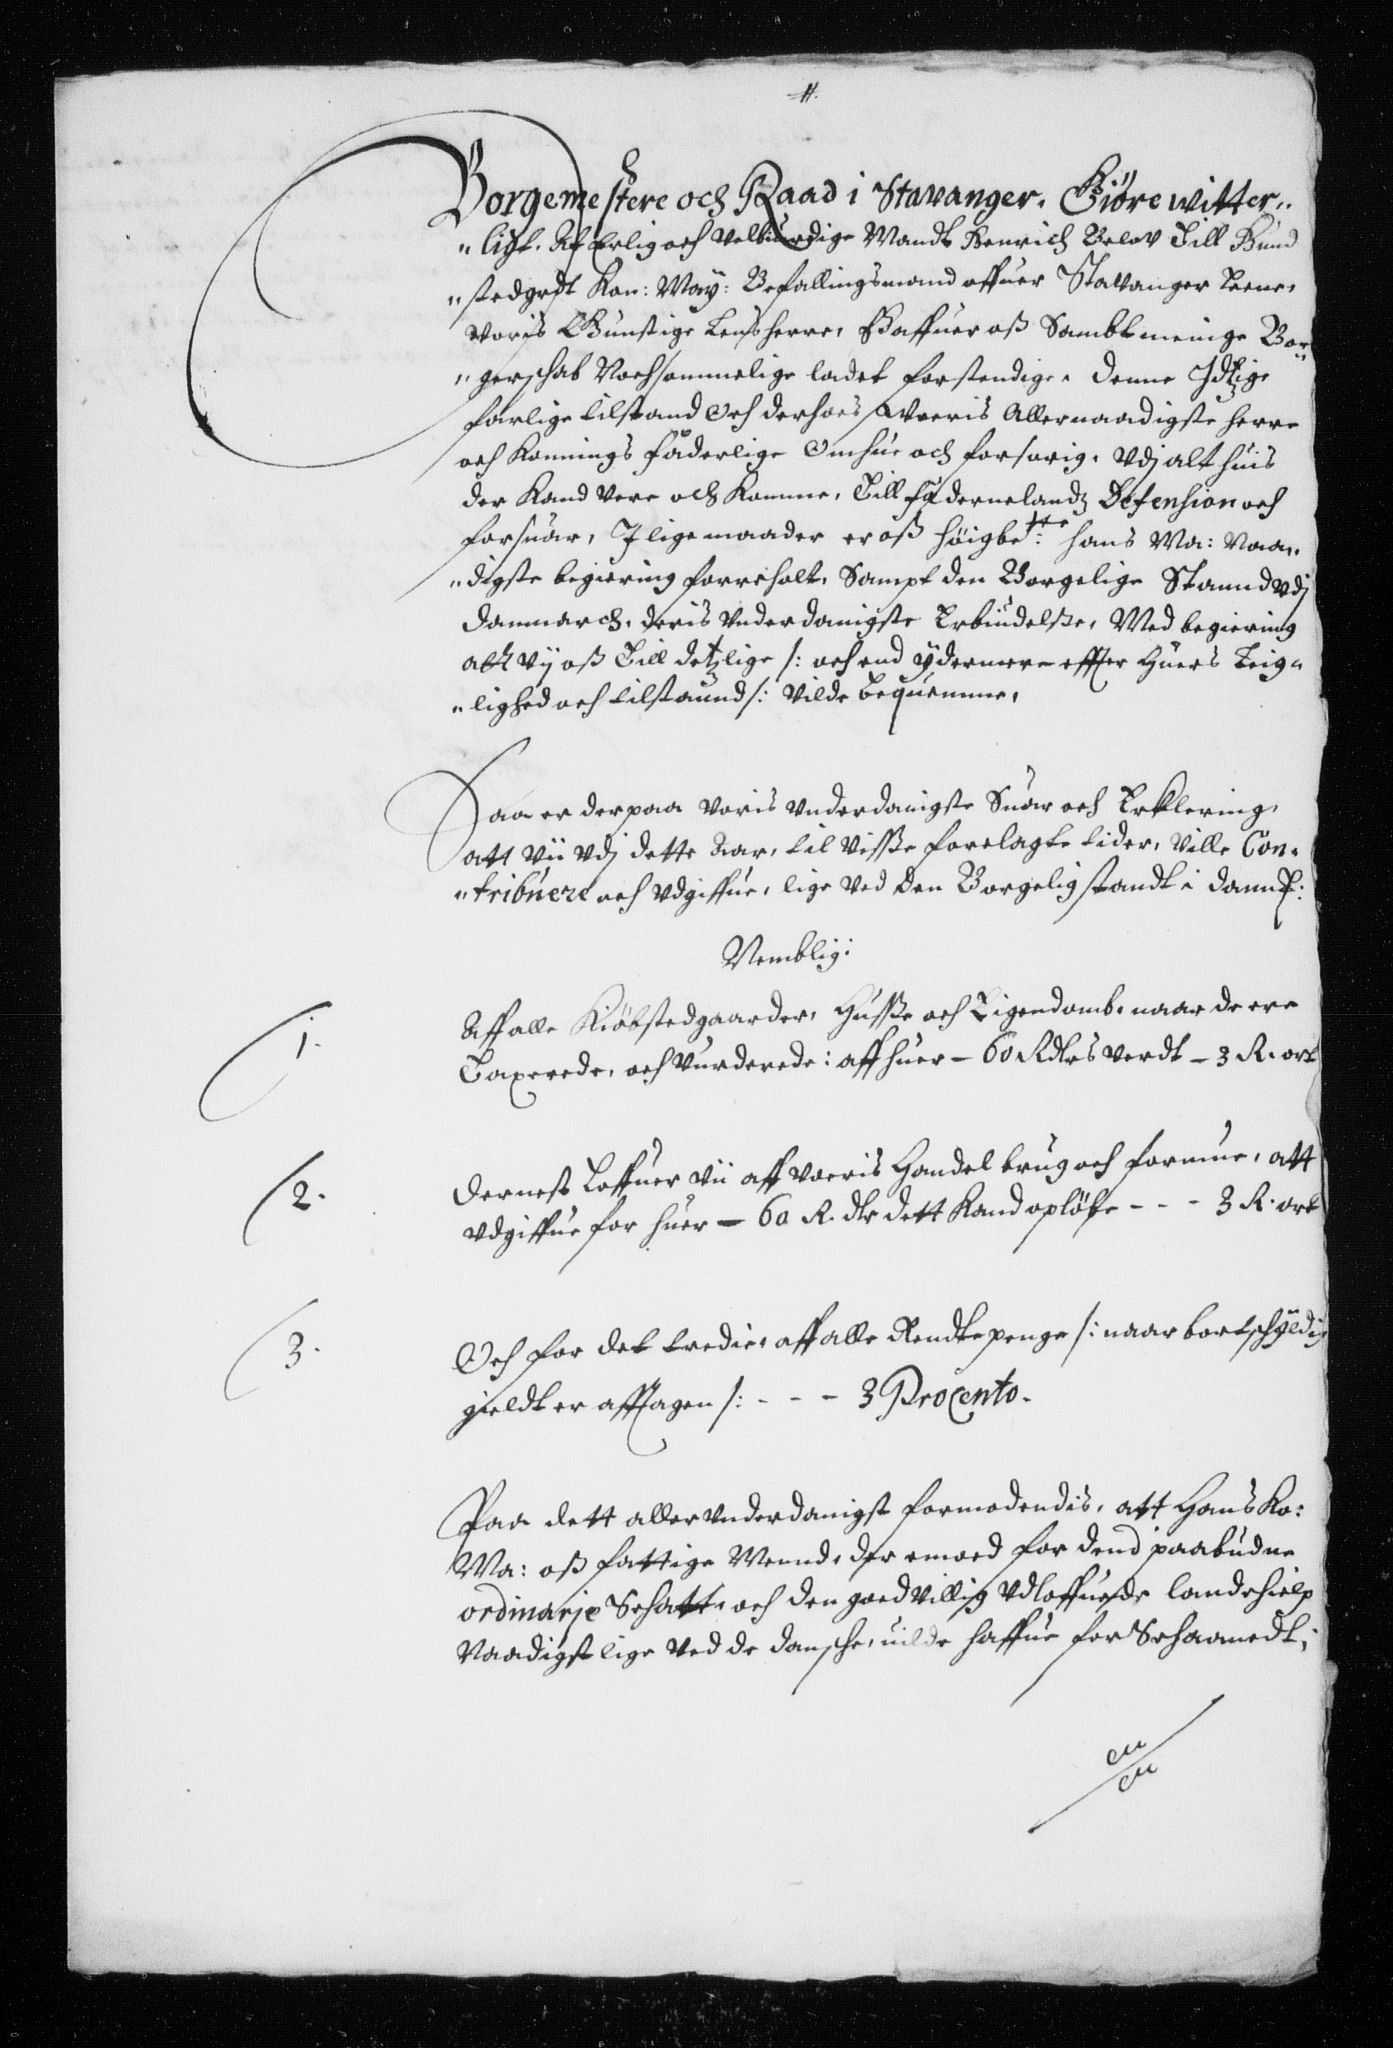 H.
Borgemestere och Raad i Stavanger. Giöre witter„
„ligt. At Erlig och Velbiurdige Mandt Henrich Belov Till Hund
„stedgrdt Kon: May: Befallingsmand offuer Stavanger Leene,
voris Gunstige Lensherre, Haffuer oß Sambt meinige Bor„
„gerschab Nochsommelige ladet forstendige, denne Idtzige
farlige tilstand Och derhoes Woeris Allernaadigste herre
och Konnings faderlige Omhue och forsorig, vdj alt huis
der Kand vere och Komme, Till fädernelandz Defension och
forsuar, I lige maader er oß höigbete: hans Ma: Naa„
„digste begiering foreholt, Sampt den Borgelige Stannd vdj
Danmarch, deris vnderdanigste Erbiudelße, Med begiering
att vij oß Till detzlige /: och end ydermere effter Huers Leig„
„lighed och tilstaund :/ vilde bequemme,
Saa er derpaa voris vnderdanigste Suar och Erklering,
att vii vdj dette Aar, til visße forelagte tider, ville Con„
„tribuere och vdgiffue, lige ved den Borgelig standt i Danmk:
Nemblig:
1.
Aff alle Kiöbstedgaarder, Husße och Eigendomb, naar de ere
Taxerede, och vurderede: aff huer – 60 Rdlrs verdt – 3 R. ort
2.
Dernest Loffuer vii aff voeris Handel brug och formue, att
vdgiffue for huer – 60 R. dlr dett Kand opløbe - - - 3 R. ort
3.
Och for det tredie, aff alle Rendtepenge /: naar bortschyldig
gieldt er afftagen /: - - - 3 Procento.
Paa dett allervnderdanigst formodendis, att Hans Ko:
Ma: oß fattige Mennd, der emoed for dend paabudne
ordinarje Schatt, och den goedvillig vdloffuede landehielp
Naadigst lige ved de danske, uilde haffue for Schaanedt,